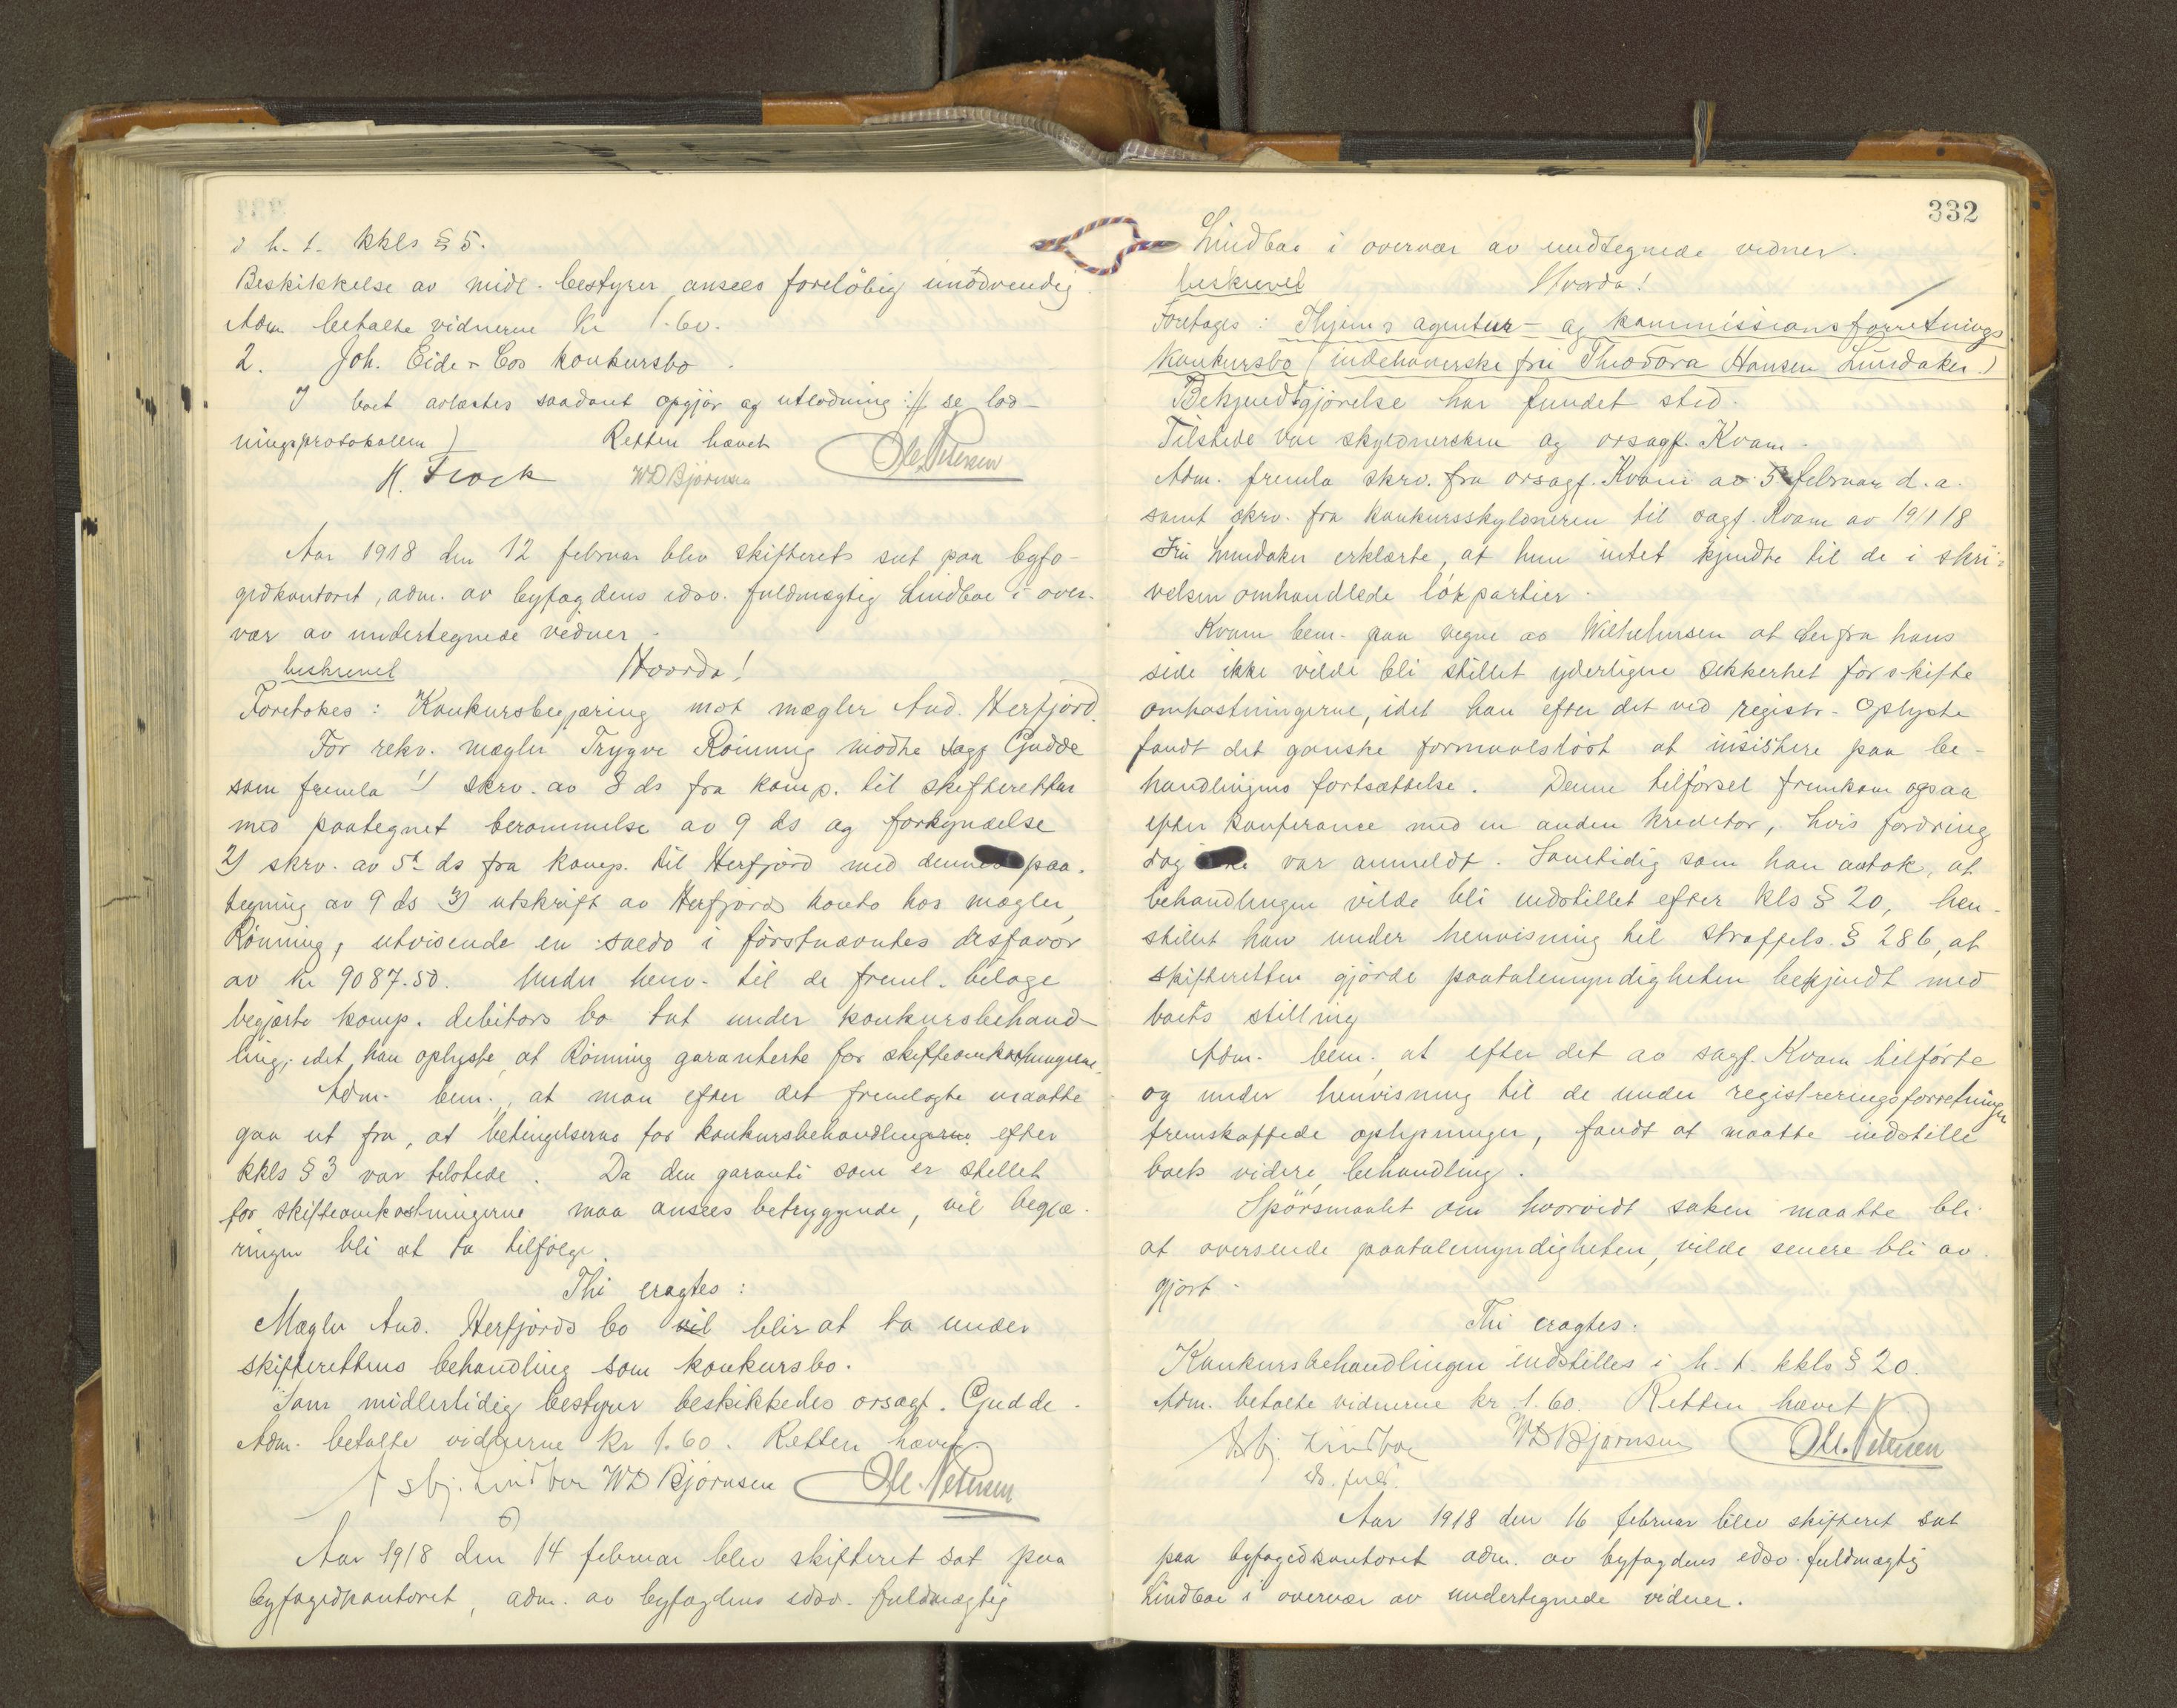 i h. t. kkls § 5.
Beskikkelse av midl. bestyrer ansees foreløbig unødvendig.
Adm. betalte vidnerne kr 1.60.
2. Joh. Eide & Cos konkursbo.
I boet avlæstes saadant opgjør og utlodning :// se lod-
ningsprotokollen) Retten hævet
H. Frock WD Bjørnsen Ole. Petersen
Aar 1918 den 12 februar blev skifteret sat paa byfo-
gedkontoret, adm. av byfogdens edsv. fuldmægtig Lindboe i over-
vær av undertegnede vidner.
beskrevet Hvorda!
Foretokes: Konkursbegjæring mot mægler And. Herfjord.
For rekv. mægler Trygve Rönning mødte sagf Gudde
som fremla 1) skrv. av 8 ds fra komp. til skifteretten
med paategnet berammelse av 9 ds og forkyndelse
2) skrv. av 5t ds fra komp. til Herfjord med dennes paa-
tegning av 9 ds 3) utskrift av Herfjords konto hos mægler
Rönning, utvisende en saldo i förstnævntes disfavør
av kr 9087.50. Under henv. til de freml. bilage
begjærte komp. debitors bo tat under konkursbehand-
ling, idet han oplyste, at Rönning garanterte for skifteomkostningerne.
Adm. bem., at man efter det fremlagte maatte
gaa ut fra, at betingelserne for konkursbehandlingen efter
kkls § 3 var tilstede. Da den garanti som er stillet
for skifteomkostningerne maa ansees betryggende, vil begjæ-
ringen bli at ta tilfølge.
Thi eragtes:
Mægler And. Herfjords bo vil blir at ta under
skifterettens behandling som konkursbo.
Som midlertidig bestyrer beskikkedes orsagf. Gudde.
Adm. betalte vidnerne kr 1.60. Retten hævet
Asbj. Lindboe WD Bjørnsen Ole. Petersen
Aar 1918 den 14 februar blev skifteret sat paa
byfogedkontoret, adm. av byfogdens edsv. fuldmægtig
332
Lindboe i overvær av undtegnede vidner.
beskrevet Hvorda!
Foretoges: Thjems agentur- og kommissionsforretnings
konkursbo (indehaverske fru Theodora Hansen Lundaker.)
Bekjendtgjörelse har fundet sted.
Tilstede var skyldnersken og orsagf. Kvam.
Adm. fremla skrv. fra orsagf. Kvam av 5 februar d.a.
samt skrv. fra konkursskyldneren til sagf. Kvam av 19/1 18
Fru Lundaker erklærte, at hun intet kjendte til de i skri-
velsen omhandlede løkpartier.
Kvam bem. paa vegne av Wilhelmsen at der fra hans
side ikke vilde bli stillet yderligere sikkerhet for skifte
omkostningerne, idet han efter det ved registr. oplyste
fandt det ganske formaalsløst at insistere paa be-
handlingens fortsættelse. Denne tilførsel fremkom ogsaa
efter konferance med en anden kreditor, hvis fordring
dog ikke var anmeldt. Samtidig som han antok, at
behandlingen vilde bli indstillet efter kls § 20, hen-
stillet han under henvisning til straffels. § 286, at
skifteretten gjörde paatalemyndigheten bekjendt med
boets stilling
Adm. bem., at efter det av sagf. Kvam tilførte
og under henvisning til de under registreringsforretningen
fremskaffede oplysninger, fandt at maatte indstille
boets videre behandling.
Spörsmaalet om hvorvidt saken maatte bli
at oversende paatalemyndigheten, vilde senere bli av-
gjort.
Thi eragtes:
Konkursbehandlingen indstilles i h. t. kkls § 20.
Adm. betalte vidnerne kr 1.60. Retten hævet
Asbj. Lindboe WD Bjørnsen Ole. Petersen
ds. fuld.
Aar 1918 den 16 februar blev skifteret sat
paa byfogedkontoret adm. av byfogdens edsv. fuldmægtig
Lindboe i overvær av undertegnede vidner.